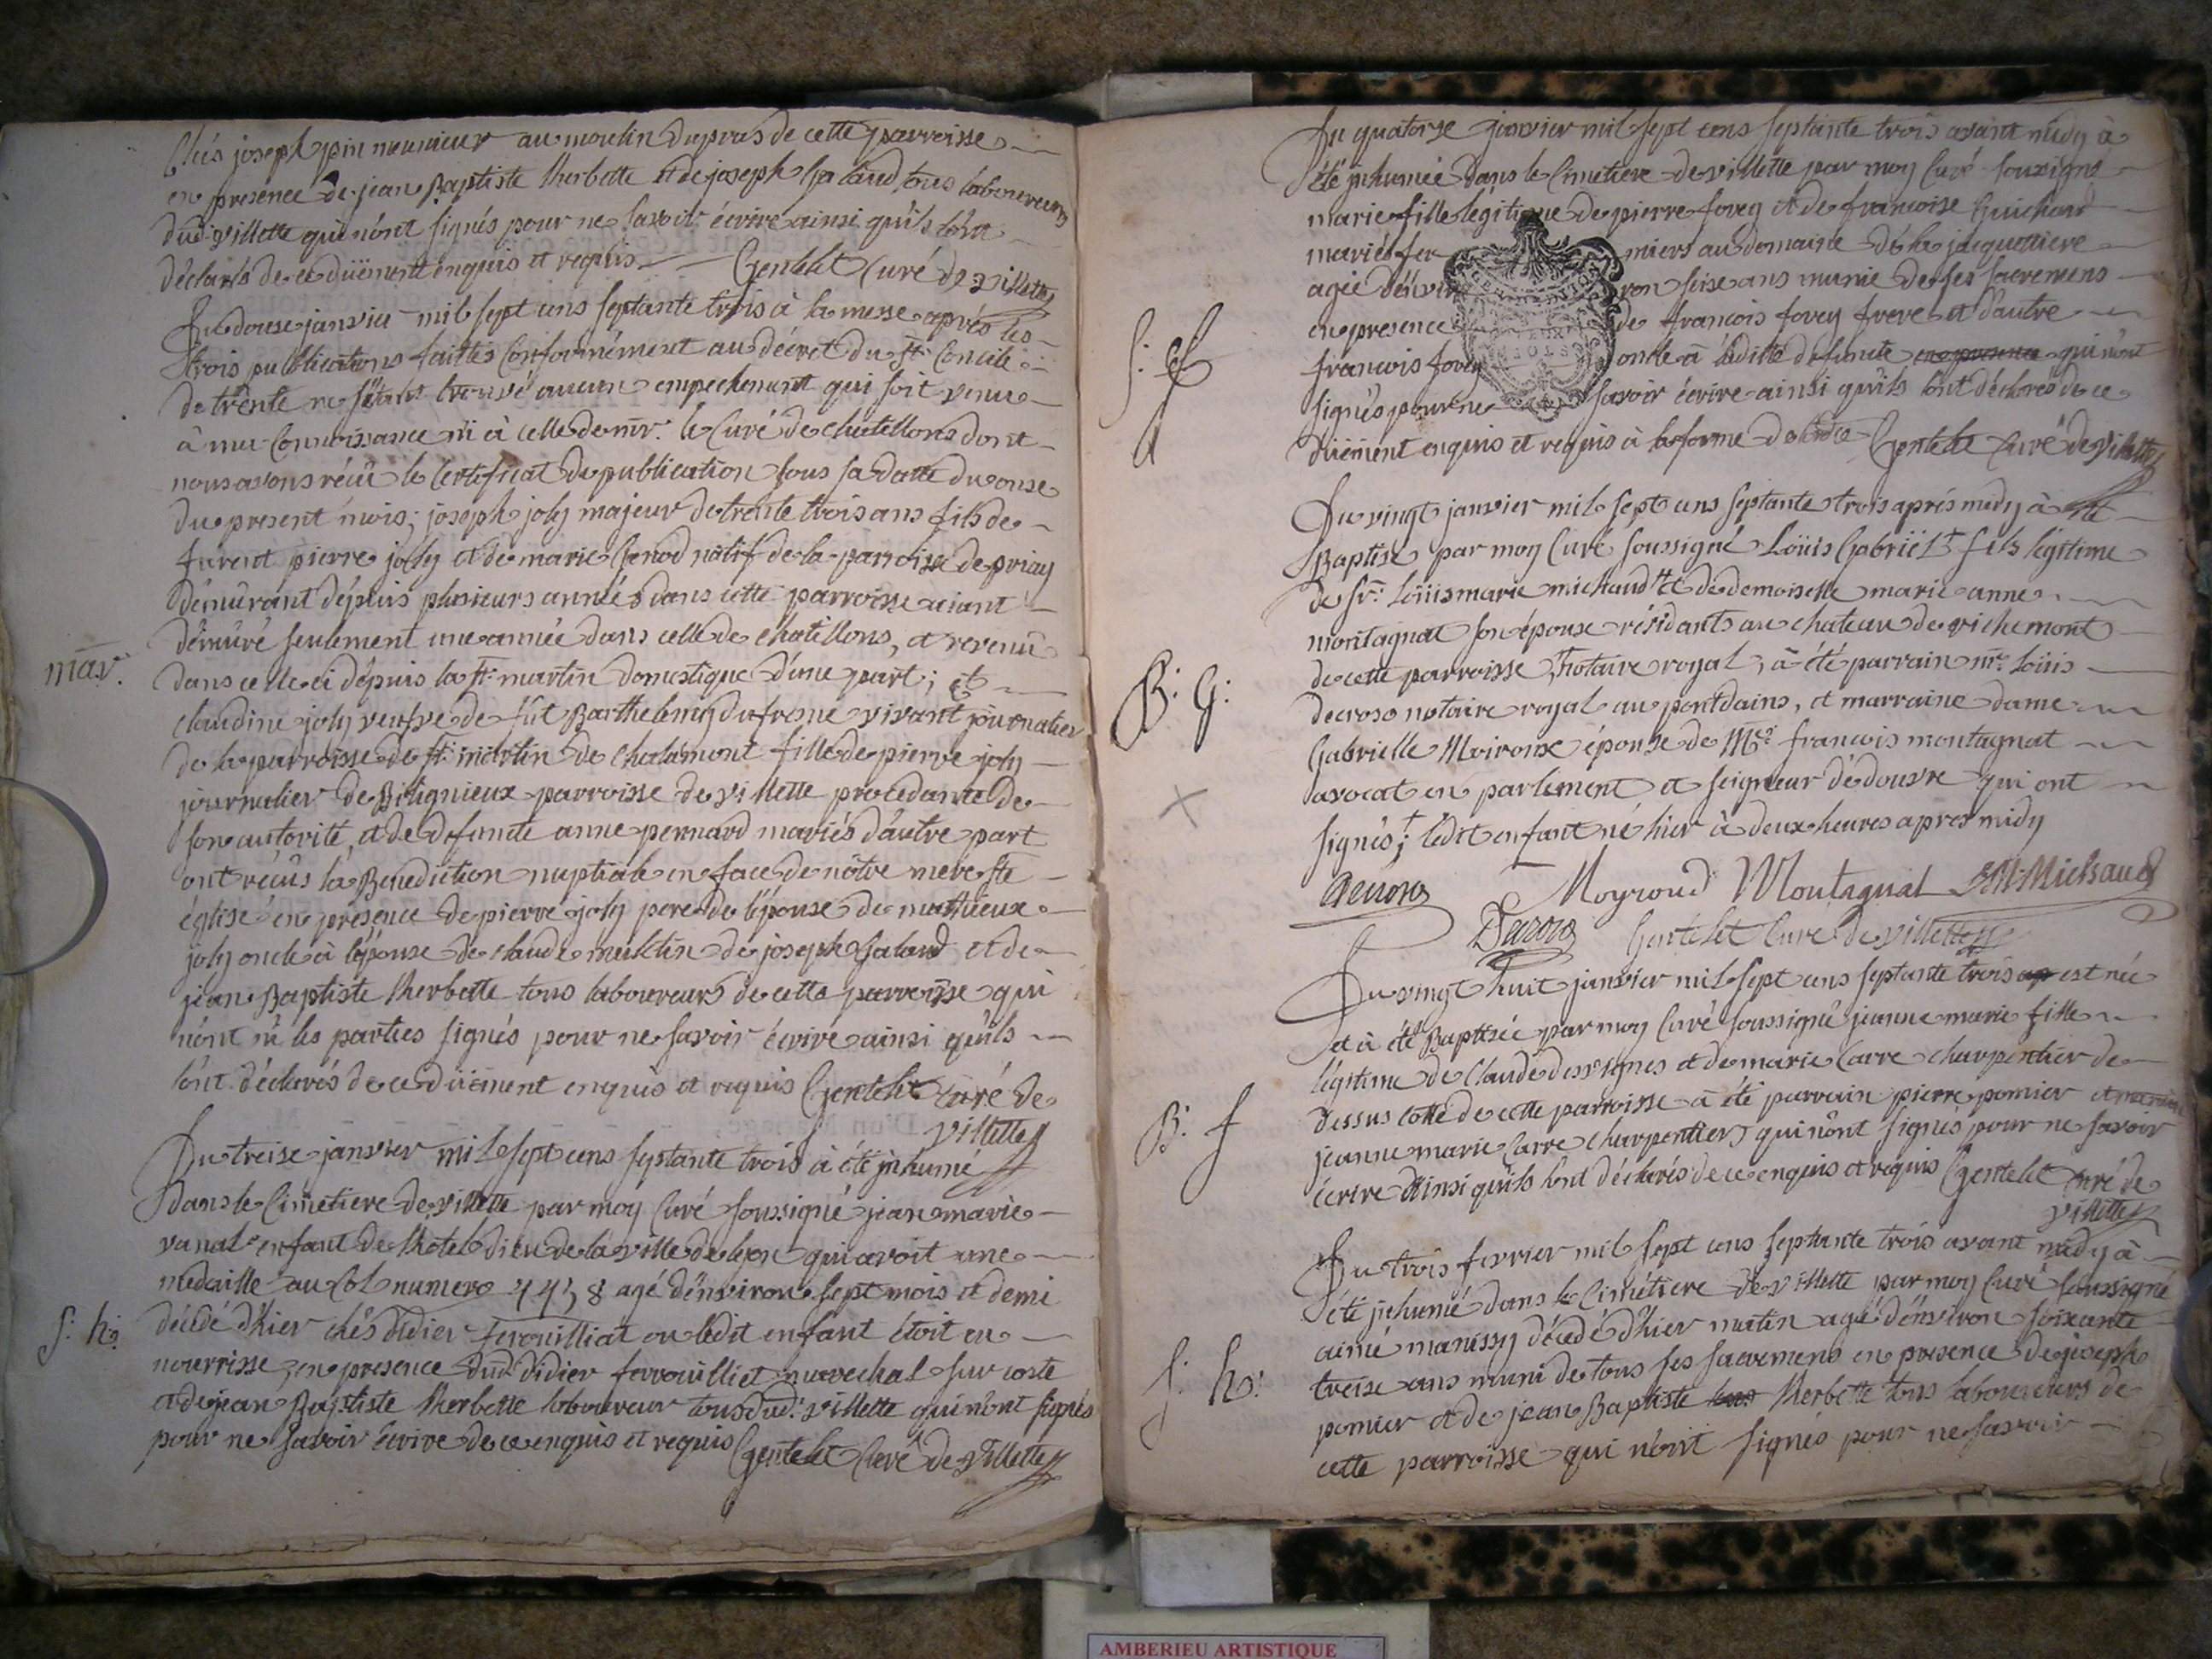 Chés joseph pin meunieur au moulin du pras de cette parroisse
en presence de jean Baptiste therbette et de joseph Galand tous laboureurs
dud: villette qui n'ont signés pour ne savoir écrire ainsi qu'ils l'ont
déclarés de ce düement enquis et requis Gentelet Curé de villette
Du douse janvier mil sept cens septante trois à la messe aprés les
trois publications faittes Conformément au décret du st: Concile
de trente ne s'etant trouvé aucun empechement qui soit venu
à ma Connoissance ni à celle de mr. le Curé de chatillons dont
nous avons réçû le Certificat de publication sous sa datte du onse
du present mois; joseph joly majeur de trente trois ans fils de
furent pierre joly et de marie Genod natif de la parroisse de priay
démûrant dépuis plusieurs années dans cette parroisse aiant
démûré seulement une année dans celle de chatillons, et revenû
mar:
dans celle ci dépuis la st: martin domestique d'une part; et
claudine joly veufve de fût Barthelemy dufresne vivant journalier
de la parroisse de st: martin de Chalamont fille de pierre joly
journalier de Bilignieux parroisse de villette procedante de
son autorité, et de defunte anne pernard mariés d'autre part
ont reçûs la Benediction nuptiale en face de nôtre mere ste
église en presence de pierre joly pere de l'épouse de mathieux
joly oncle à l'épouse de claude de joseph Galand et de
jean Baptiste therbette tous laboureurs de cette parroisse qui
n'ont ni les parties signés pour ne savoir écrire ainsi qu'ils
l'ont déclarés de ce düement enquis et requis Gentelet curé de
villette
Du treise janvier mil sept cens septante trois à été jnhumé
dans le Cimetiere de villette par moy Curé soussigné jean marie
vanal enfant de l'hotel dieu de la ville de lyon qui avoit une
medaille au Col numero agé d'environ sept mois et demi
s: h:
décédé d'hier chés didier ferouilliat ou ledit enfant étoit en
nourrisse, en presence dud: didier ferrouilliet marechal sur coste
et de jean Baptiste therbette laboureur tous dud: villette qui n'ont signés
pour ne savoir écrire de ce enquis et requis Gentelet Curé de villette
Du quatorse janvier mil sept cens septante trois avant midy à
été jnhumée dans le Cimetiere de villette par moy Curé soussigné
marie fille légitime de pierre fovey et de francoise Guichard
mariés fer miers au domaine dé la jacquettiere
agée d'envi ron seise ans munie de ses sacremens
en presence de francois fovey frere et d'autre
s: f
francois fovey oncle à ladite defunte en presence qui n'ont
signés pour ne savoir écrire ainsi qu'ils l'ont déclarés de ce
düement enquis et requis à la forme de Gentelet Curé de villette
Du vingt janvier mil sept cens septante trois aprés midy à été
Baptisé par moy Curé soussigné Loüis Gabriël fils legitime
de sr: loüis marie michaud et de demoiselle marie anne
montagnat son épouse résidants au chateau de richemont
B: G:
de cette parroisse, notaire royal, à été parrain mr: loüis
decroso notaire royal au pont dains, et marraine dame
Gabrielle Moiroux épouse de Mr: francois montagnat
avocat en parlement et seigneur dé douvre qui ont
signés; ledit enfant né hier à deux heures apres midy
Moyroud Montagnat LM Michaud
Gentelet Curé de villette
Du vingt huit janvier mil sept cens septante trois ap est née
et à été Baptisée par moy Curé soussigné jeanne marie fille
légitime de Claude desvignes et de marie Carre charpentier de
B: f
dessus cotte de cette parroisse à été parrain pierre pomier et marraine
jeanne marie Carre charpentier qui n'ont signés pour ne savoir
écrire ainsi qu'ils l'ont déclarés de ce enquis et requis Gentelet curé de
villette
Du trois fevrier mil sept cens septante trois avant midy à
été jnhumé dans le Cimétiere de villette par moy Curé soussigné
aimé manissy décedé d'hier matin agé d'environ soixante
s: h:
treise ans muni de tous ses sacremens en presence de joseph
pomier et de jean Baptiste therbette tous laboureurs de
cette parroisse qui n'ont signés pour ne savoir
AMBERIEU ARTISTIQUE